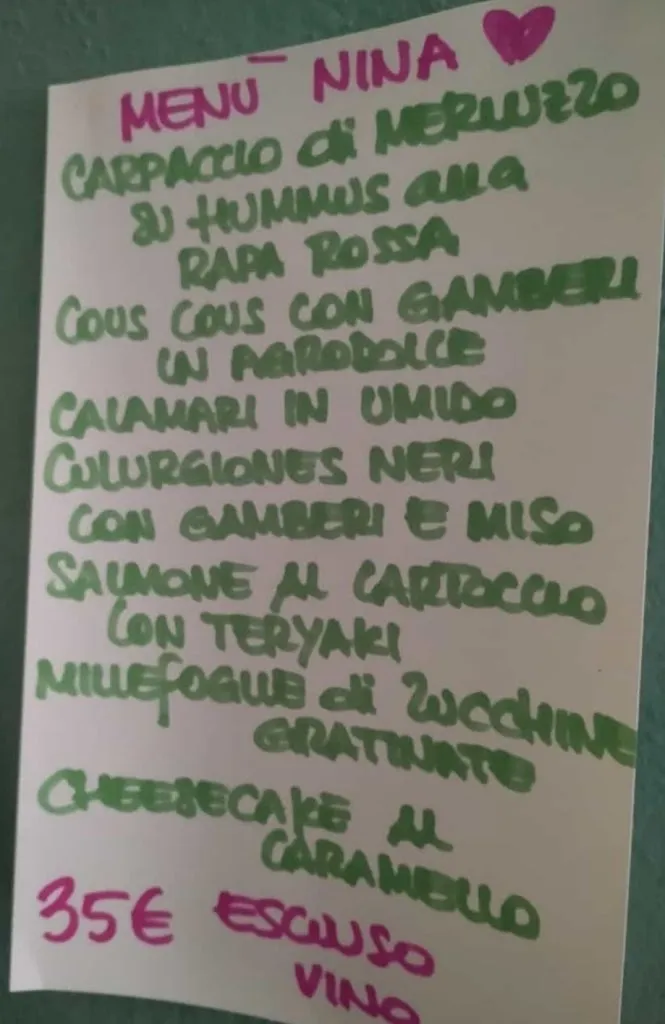 MENÙ NINA ♥
CARPACCIO di MERLUZZO
SU HUMMUS alla
RAPA ROSSA
COUS COUS CON GAMBERI
IN AGRODOLCE
CALAMARI IN UMIDO
CULURGIONES NERI
CON GAMBERI E MISO
SALMONE AL CARTOCCIO
CON TERYAKI
MILLEFOGLIE di ZUCCHINE
GRATINATE
CHEESECAKE AL
CARAMELLO
35€ ESCLUSO
VINO